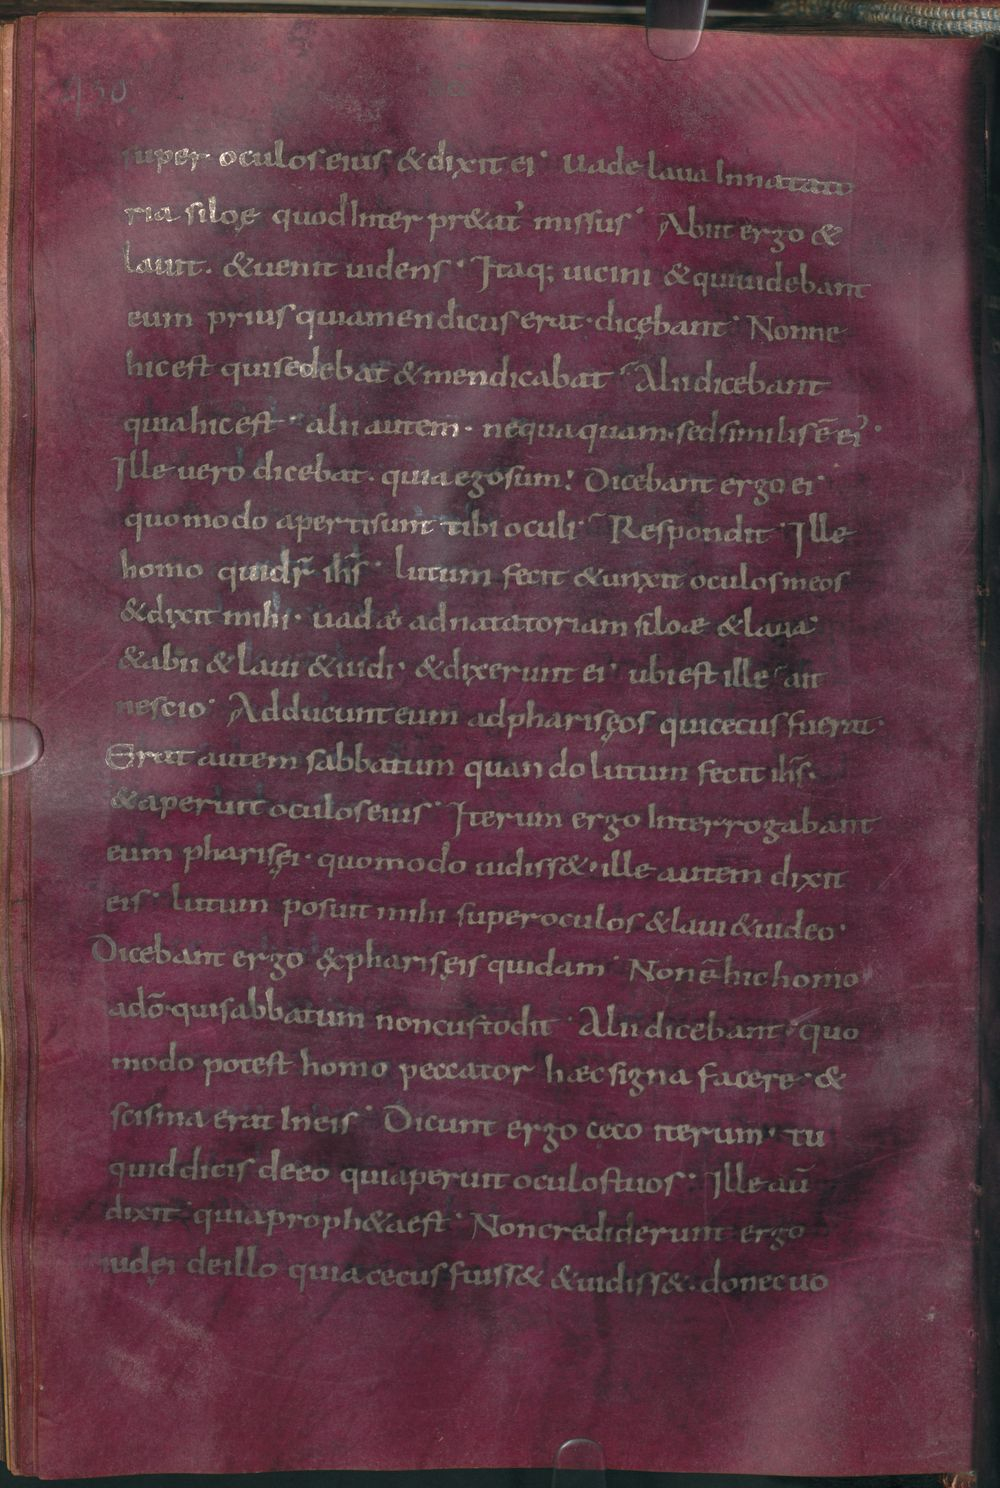 430
super oculos eius & dixit ei· uade laua Innatato
ria siloę quod Inter pr&at᾽ missus· Abiit ergo &
lauit· & uenit uidens· Itaq; uicini & qui uidebant
eum prius quia mendicus erat· dicębant· Nonne
hic est qui sedebat & mendicabat· Alii dicebant
quia hic est· alii autem· nequaquam· sed similis ē ei᾽·
Ille uero dicebat· quia ego sum! Dicebant ergo ei·
quomodo aperti sunt tibi oculi· Respondit· Ille
homo qui dr̄ ihs̄· lutum fecit & unxit oculos meos
& dixit mihi· uadæ ad natatoriam siloæ & laua·
& abii & laui & uidi· & dixerunt ei· ubi est ille· ait
nescio· Adducunt eum ad phariseos qui cecus fuerat·
Erat autem sabbatum quando lutum fecit ihs̄·
& aperuit oculos eius· Iterum ergo Interrogabant
eum pharisęi· quomodo uidiss&· ille autem dixit
eis· lutum posuit mihi super oculos & laui & uideo·
Dicebant ergo ex pharisęis quidam· Non ē hic homo
a dō· qui sabbatum non custodit· Alii dicebant· quo
modo potest homo peccator hæc signa facere· &
scisma erat In eis· Dicunt ergo cęco iterum· tu
quid dicis de eo qui aperuit oculos tuos· Ille aū
dixit· quia proph&a est· Non crediderunt ergo
iudęi de illo quia cecus fuiss& & uidiss&· donec uo